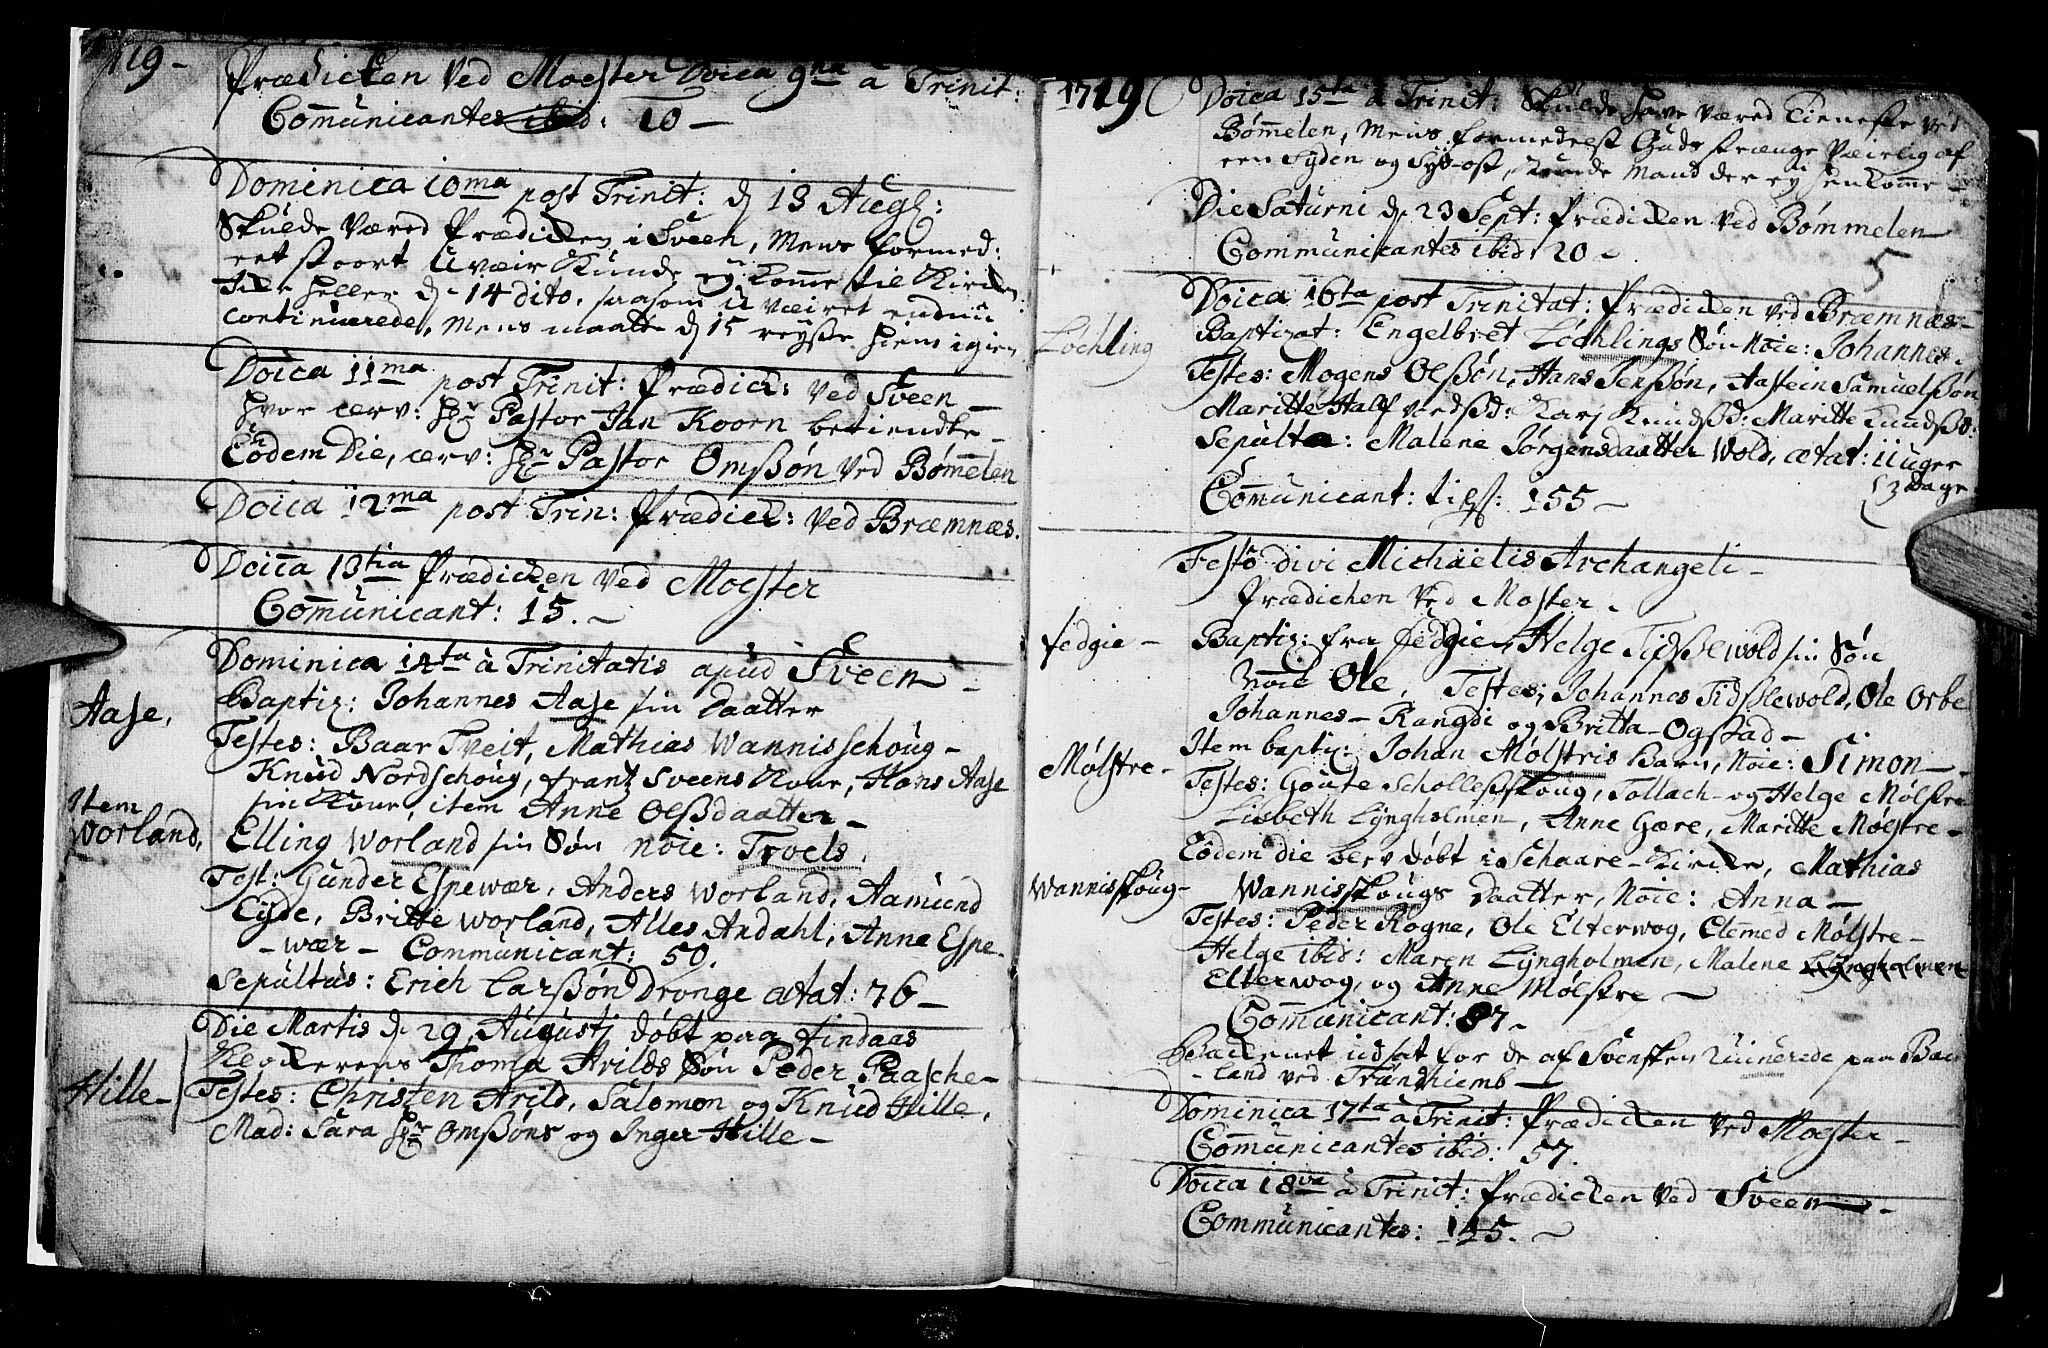 1719 -
Prædicken ved Moester Doica 9na â Trinit:
Communicantes ibid: 10 -
Dominica 10ma post Trinit: d 13 Aug:
Skulde væred Prædicken i Sveen, Mens formed:
est stoort Uveir Kunde ej komme til Kircken
Ikke heller d. 14 dito, saasom Uveiret endnu
continuerede, Mens maatte d 15 reyse hiem igien
Doica 11ma post Trinit: Prædick: ved Sveen -
hvor cærv: Hr Pastor Jan Koorn betiendte -
Eodem Die, cærv: Hr Pastor Omssøn ved Bømmelen
Doica 12ma post Trin: Prædick: ved Bræmnæs.
Doica 13tia Prædicken ved Moester
Communicant: 15. -
Dominica 14ta â Trinitatis apud Sveen -
Aase,
Baptiz: Johannes Aase sin Daatter
Testes: Baar Tveit, Mathias Wannisschoug -
Knud Nordschoug, frantz Sveens Kone, Hans Aase
sin Kone, item Anne Olssdaatter -
Item Worland,
Elling Worland sin Søn Noie: Troels.
Test: Gunder Espewær, Anders Worland, Aamund
Eyde, Britte Worland, Alles Andahl, Anne Espe-
- wær - Communicant: 50.
Sepultus: Erich Larssøn Dronge ætat: 76 -
Die Martis d. 29 Augusti døbt paa findaas
Hille -
Klockerens Thoma Arilds Søn Peder Paasche -
Testes: Christen Arild, Salomon og Knud Hille,
Mad: Sara Hr Omssøns og Inger Hille -
1719
Doica 15ta â Trinit: Skulde have været Tieneste ved
Bømmelen, Mens formedelst Guds strænge Veirlig af
een Syden og Syd-ost, kunde Mand der ey henkomme -
Die Saturni d. 23 Sept: Prædicken ved Bømmelen
Communicantes ibid: 20 -
5
Doica 16ta post Trinitat: Prædicken ved Bræmnæs -
Löchling
Baptizat: Engelbret Löchlings Søn Noie: Johannes.
Testes: Mogens Olssøn, Hans Jenssøn, Aastein Samuelssøn
Maritte Halfvordsd: Karj Knudsd: Maritte Knudsd:
Sepulta: Malene Jørgensdaatter Wold, ætat: 11 uger
3 Dage
Communicant: 155 -
Festo divi Michaëlis Archangeli -
Prædicken ved Moster.
fedgie -
Baptiz: fra fedgie, Helge Tidsslewold sin Søn
Noie Ole, Testes; Johannes Tidsslewold, Ole Orbe
Johannes - Rangdi og Britta - Ogstad -
Mølstre -
Item baptiz: Johan Mølstris Barn, Noie: Simon -
Testes: Goute Schollesskoug, Tollach - og Helge Mølstre
Lisbeth Lyngholmen, Anne Gære, Maritte Møestre -
Eodem die blev døbt i Schaare - Kircke, Mathias
Wannisskoug -
Wannisskougs Daatter, Noie: Anna -
Testes: Peder Rogne, Ole Elterwog, Clemed Mølstre -
Helge ibid: Maren Lyngholmen, Malene Lyngholmen
Elterwog, og Anne Mølstre -
Communicant: 87 -
Beckenet udsat for de af Svensken Ruinerede paa Bac
- land ved Trundhiemb -
Dominica 17ta â Trinit: Prædicken ved Moester -
Communicantes ibid: 57.
Doica 18va â Trinit: Prædicken ved Sveen -
Communicantes: 145. -